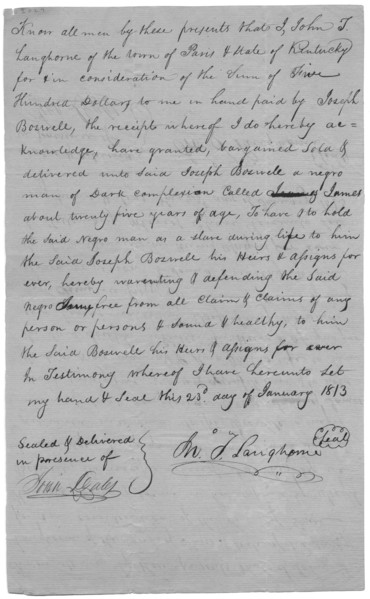 Know all men by these presents that I, John T.
Langhorne of the town of Paris & State of Kentucky
for & in consideration of the Sum of Five
Hundred Dollars to me in hand paid by Joseph
Boswell, the receipts whereof I do hereby ac-
knowledge, have granted, bargained Sold &
delivered unto Said Joseph Boswell a negro
man of Dark complexion Called James
about twenty five years of age, To have & to hold
the Said Negro man as a slave during life to him
the Said Joseph Boswell his Heirs & assigns for
ever, hereby warenting & defending the Said
negro free from all Claim & Claims of any
person or persons & Sound & healthy, to him
the Said Boswell his Heirs & assigns for ever
In Testimony whereof I have hereunto Set
my hand & Seal this 23d day of January 1813
Sealed & Delivered
in presence of
Jno. T. Langhorne
Seal
John